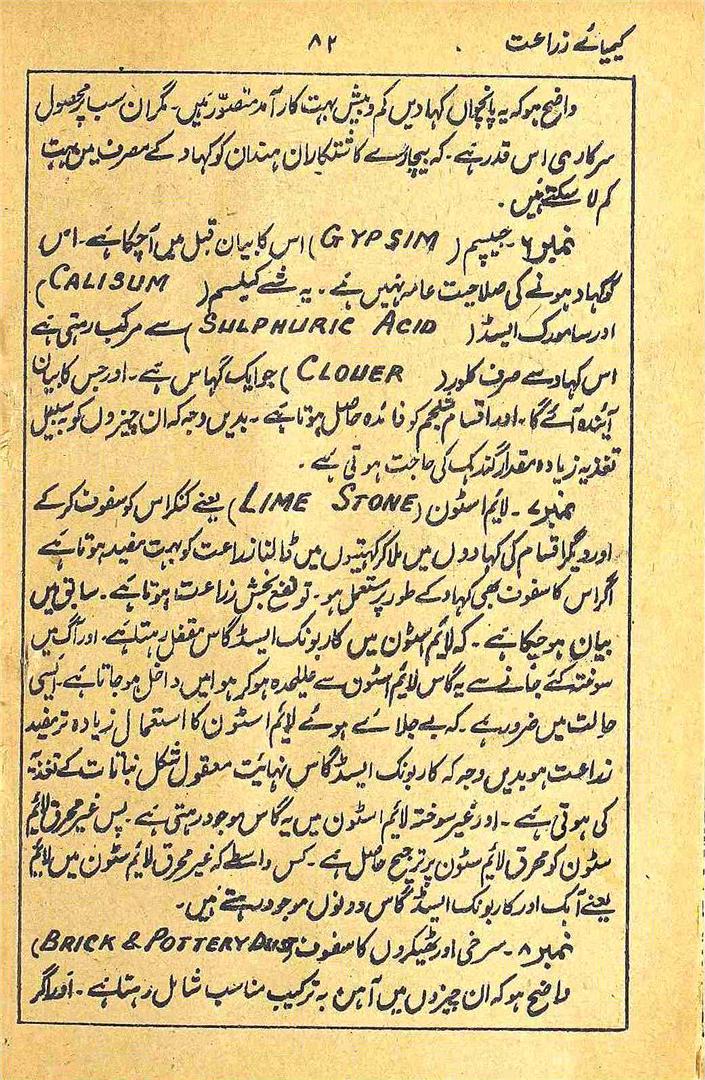 کیمیائے زراعت ۸۲
واضح ہو کہ یہ پانچواں کہادیں کم و بیش بہت کار آمد متصوّر ہیں۔ مگر ان سب پر محصول
سرکاری اس قدر ہے۔ کہ بیچارے کاشتکاران ہندان کو کہاد کے مصرف میں بہت
کم لا سکتے ہیں۔
نمبر ۶۔ جیپسم (GYPSIM) اس کا بیان قبل میں آچکا ہے۔ اس
کو کہاد ہونے کی صلاحیت عامہ نہیں ہے۔ یہ شے کیلسم (CALISUM)
اور سلفورک ایسڈ (SULPHURIC ACID) سے مرکب رہتی ہے
اس کہاد سے صرف کلور (CLOUER) جو ایک گہاس ہے۔ اور جس کا بیان
آیندہ آئے گا۔ اور اقسام شلجم کو فائدہ حاصل ہوتا ہے۔ بدیں وجہ کہ ان چیزوں کو بہ سبیل
تغذیہ زیادہ مقدار گندک کی حاجت ہوتی ہے۔
نمبر ۷۔ لائیم اسٹون (LIME STONE) یعنے کنکر اس کو سفوف کر کے
اور دیگر اقسام کی کہادوں میں ملا کر کہیتوں میں ڈالنا زراعت کو بہت مفید ہوتا ہے
اگر اس کا سفوف بھی کہاد کے طور پر مستعمل ہو۔ تو نفع بخش زراعت ہوتا ہے۔ سابق میں
بیان ہو چکا ہے۔ کہ لائیم اسٹون میں کاربونک ایسڈ گاس مقفل رہتا ہے۔ اور آگ میں
سوختہ کئے جانے سے یہ گاس لائیم اسٹون سے علیحدہ ہو کر ہوا میں داخل ہو جاتا ہے۔ ایسی
حالت میں ضرور ہے۔ کہ بے جلائے ہوئے لائیم اسٹون کا استعمال زیادہ تر مفید
زراعت ہو بدیں وجہ کہ کاربونک ایسڈ گاس نہایت معقول شکل نباتات کے تغذیہ
کی ہوتی ہے۔ اور غیر سوختہ لائیم اسٹون میں یہ گاس موجود رہتی ہے۔ پس غیر محرق لائیم
سٹون کو محرق لائیم سٹون پر ترجیح حاصل ہے۔ کس واسطے کہ غیر محرق لائیم سٹون میں لائیم
یعنے آہک اور کاربونک ایسڈ گاس دونوں موجود رہتے ہیں۔
نمبر ۸۔ سرخی اور ٹھیکروں کا سفوف (BRICK & POTTERY DUST)
واضح ہو کہ ان چیزوں میں آہن بہ ترکیب مناسب شامل رہتا ہے۔ اور اگر